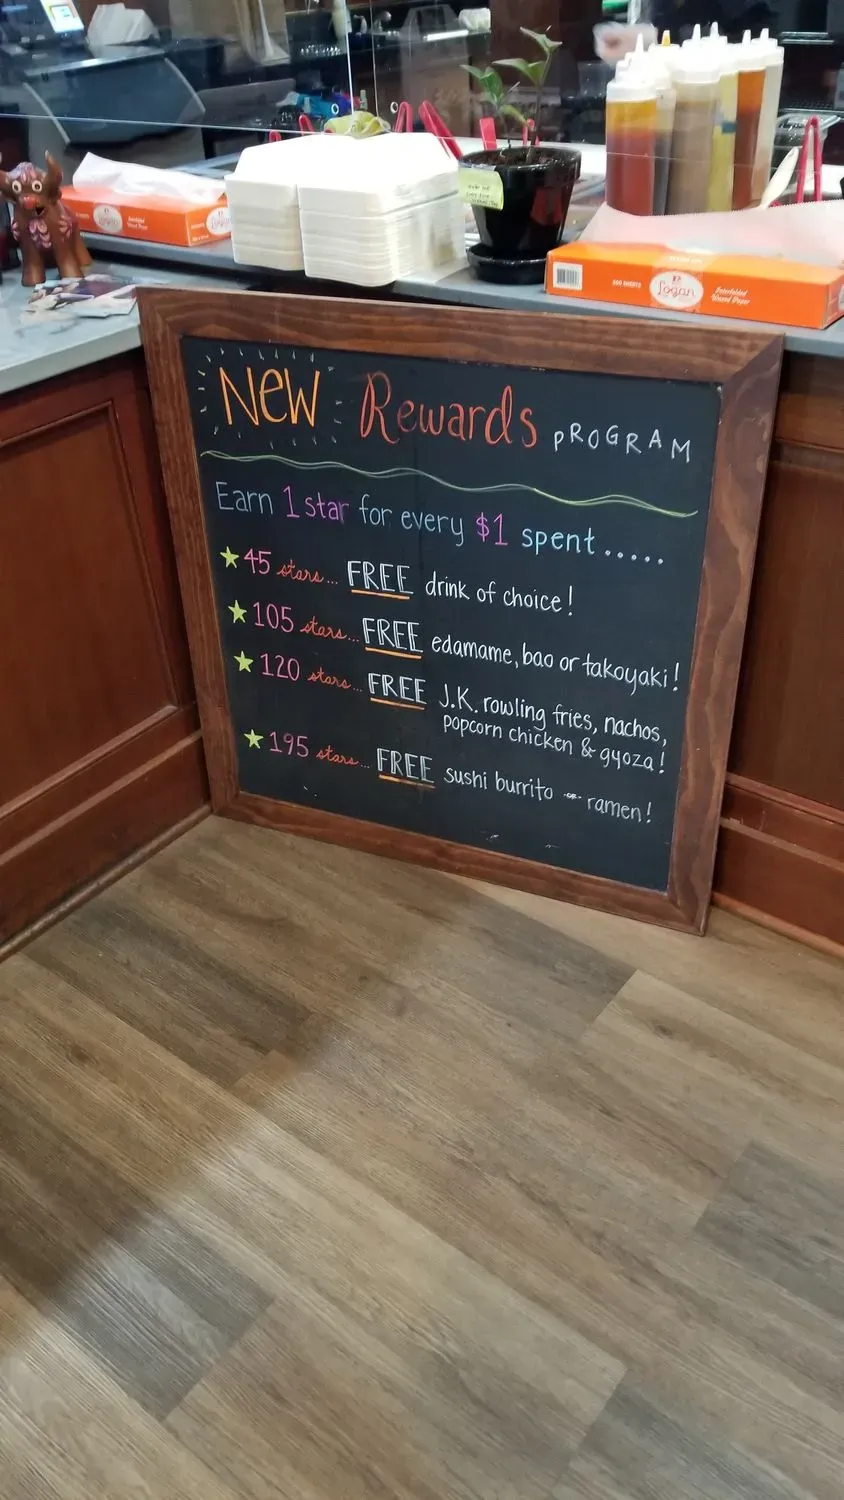 Logan
500 SHEETS
Logan
Interfolded
Waxed Paper
NEW Rewards PROGRAM
Earn 1 star for every $1 spent.....
45 stars... FREE drink of choice!
105 stars... FREE edamame, bao or takoyaki!
120 stars... FREE J.K. rowling fries, nachos,
popcorn chicken & gyoza!
195 stars... FREE sushi burrito or ramen!